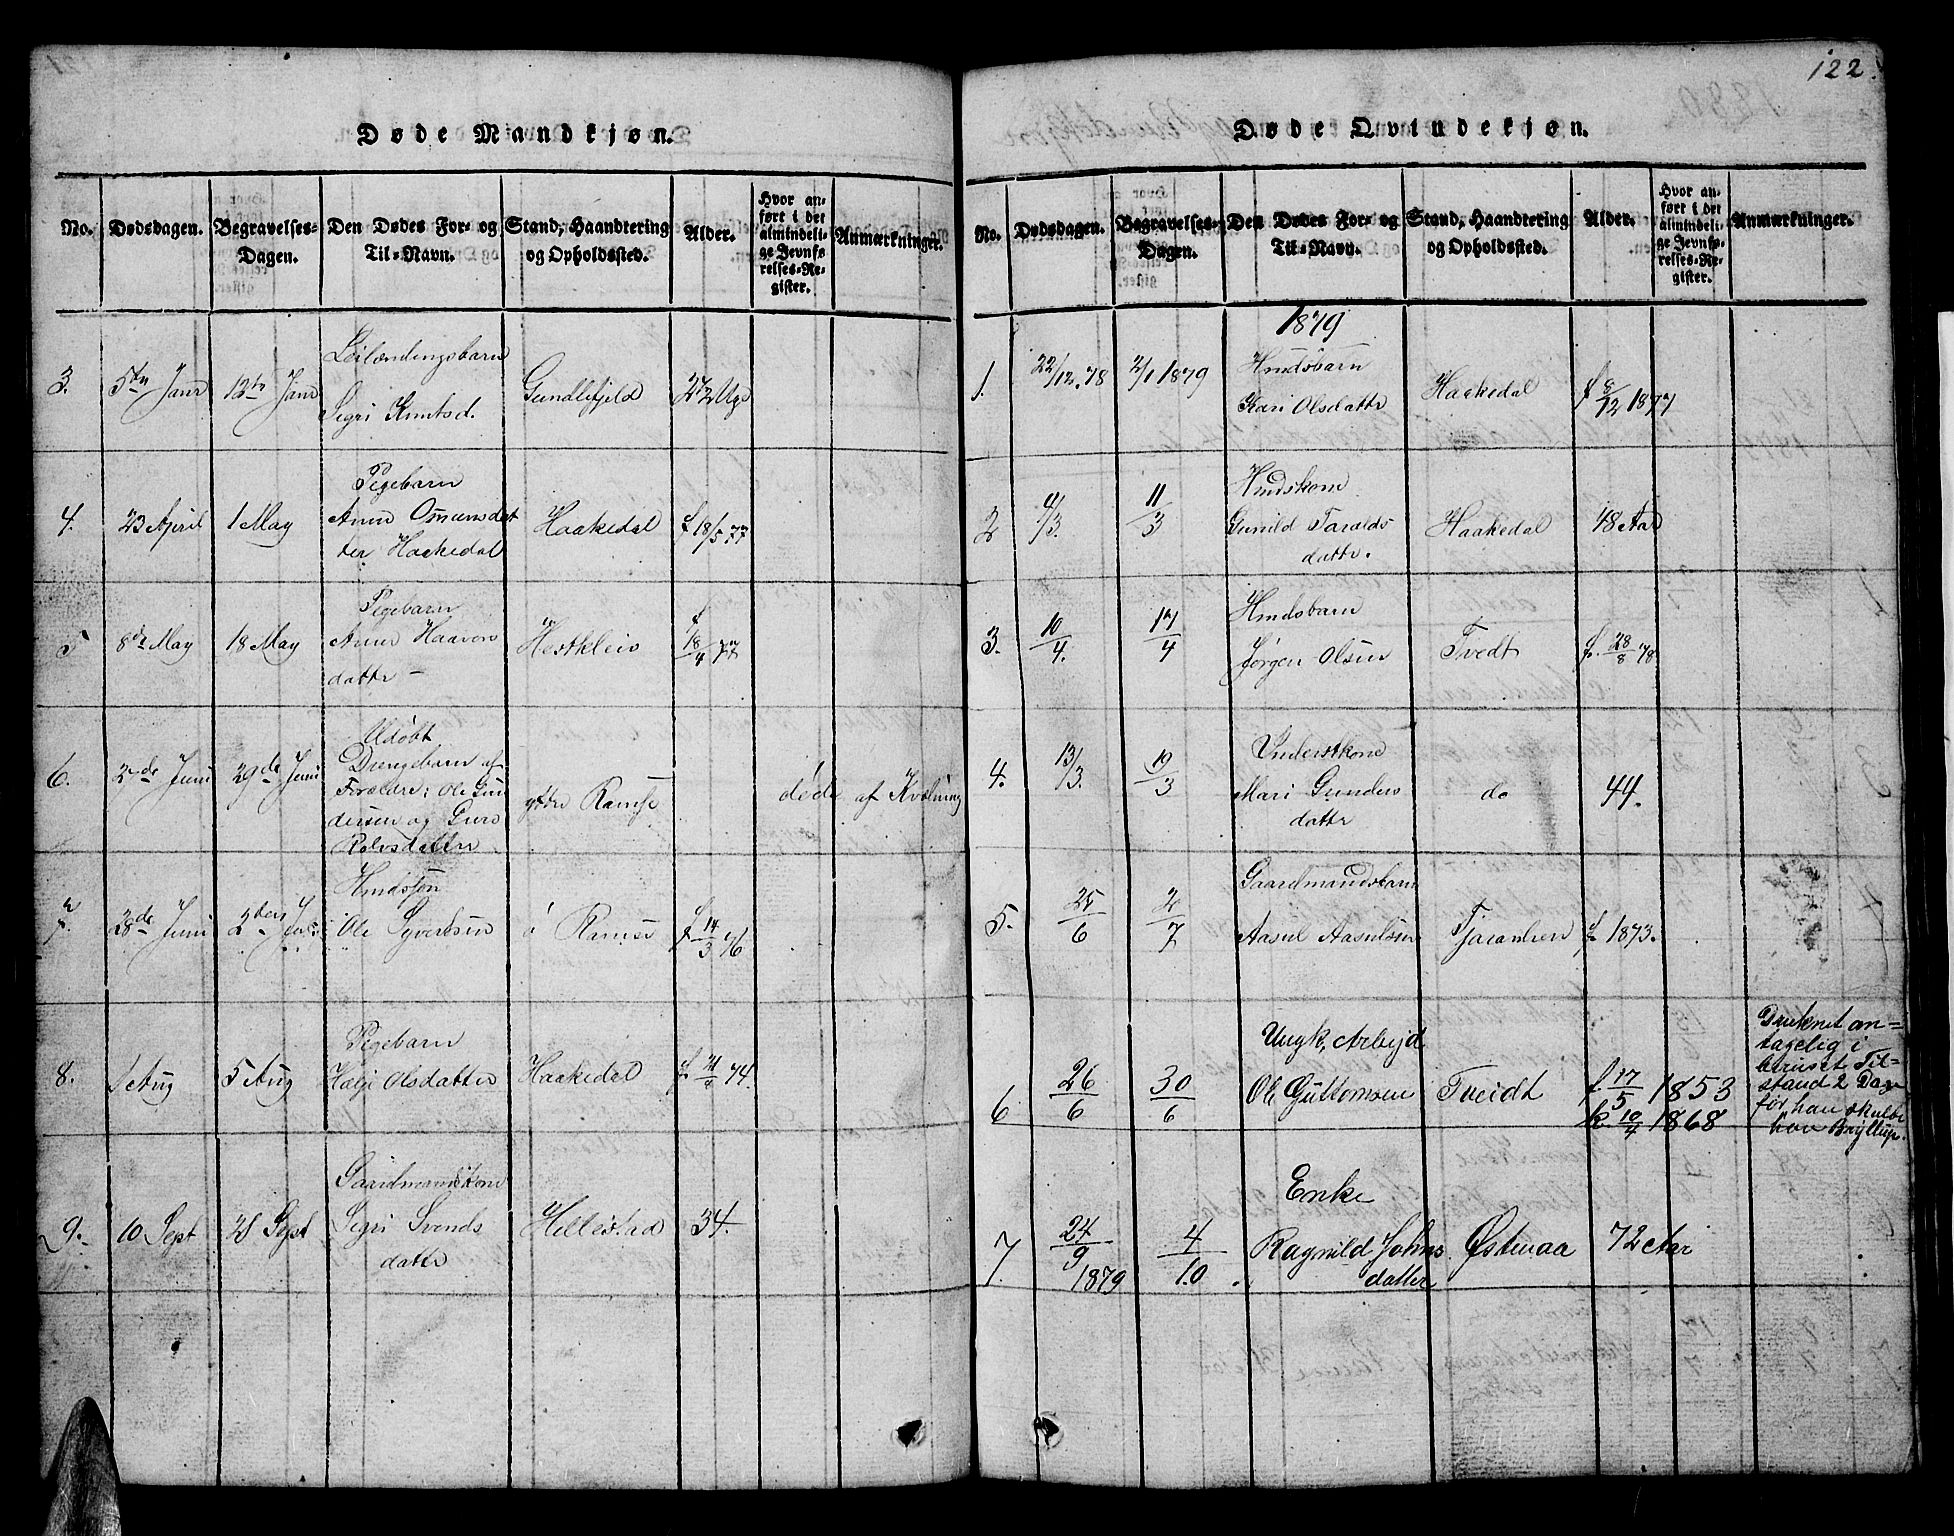 122.
Døde Mandkjøn.
No. Dødsdagen. Begravelses-Dagen. Den Dødes For- og Til-Navn. Stand, Haandtering og Opholdssted. Alder. Hvor anført i det almindelige Jevnførelses-Register. Anmærkninger.
3. 5te Janr 12te Janr Leilændingsbarn
Sigri Knutsd. Gundlefjeld
4. 23 April 1 May Pigebarn
Anne Omunsdat
ter Haakedal Haakedal f 18/5 77
5 8de May 18 May Pigebarn
Anne Haavors
datter – Hestkleiv f 18/4 77
6. 27de Juni 29de Juni Udøbt
Drengebarn af
Forældre: Ole Gun
dersen og Guro
Rolvsdatter ytre Ramse døde af Kvælning
7. 28de Juni 2den Juli Hmdssøn
Ole Syvertsen Ramse f 14/3 76
8. 1 Aug 5 Aug Pigebarn
Helje Olsdatter Haakedal f. 74.
9. 10 Sept 28 Sept Gaardmandskone
Sigri Svends
datter Hillestad 34.
Døde Qvindekjøn.
No. Dødsdagen. Begravelses-Dagen. Den Dødes For- og Til-Navn. Stand, Haandtering og Opholdssted. Alder. Hvor anført i det almindelige Jevnførelses-Register. Anmærkninger.
1879
1. 22/12.78 2/1 1879 Hmdsbarn
Kari Olsdattr Haakedal f 8/12 1877
2 4/3. 11/3 Hmdskone
Gunild Taralds
dattr. Haakedal 48 Aar
3. 10/4. 17/4 Hmdsbarn
Jørgen Olsen Tvedt f. 28/8 78.
4. 13/3. 19/3 Inderstkone
Mari Gunders
dattr do 44.
5. 25/6 2/7 Gaardmandsbarn
Aasul Aasulsen f. 1873.
6 26/6 30/6 Ungk, Arbejd
Ole Guttomsen Tveidt f. 17/5 1853
k. 19/4 1868
Druknet an=
tagelig i
beruset Til=
stand 2 Dage
før han skulde
have Bryllup.
7. 24/9 1879 4/10 Enke
Ragnild Johns
datter Østenaa 72 Aar